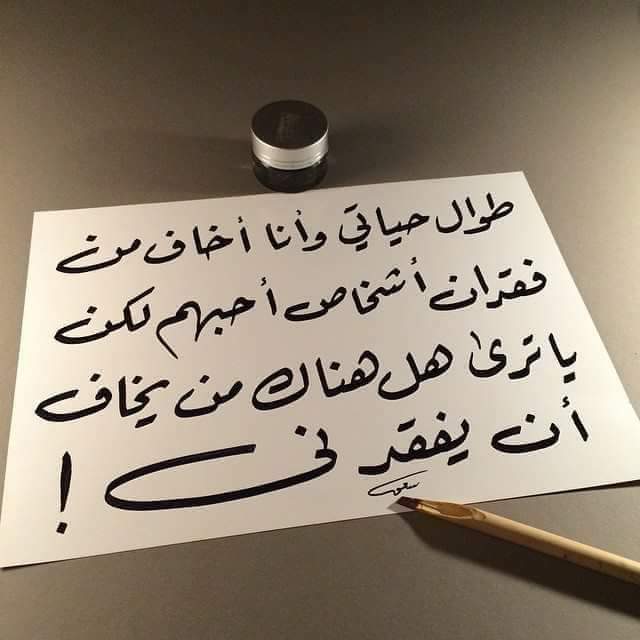 طوال حياتي وأنا أخاف من
فقدان أشخاص أحبهم لكن
يا ترىٰ هل هناك من يخاف
أن يفقدني !